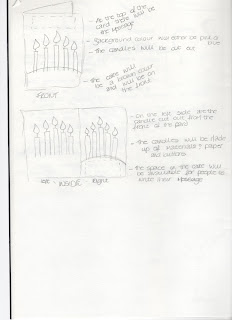 - At the top of the
card there will be
a message
- Background colour will either be pink or
blue
- the candles will be cut out
- the cake will
be a brown colour
and will be on
the front
FRONT
- On the left side are the
candles cut out from the
front of the card
- the candles will be made
up of materials, paper
and buttons
- the space on the cake will
be available for people to
write their message
left - INSIDE Right